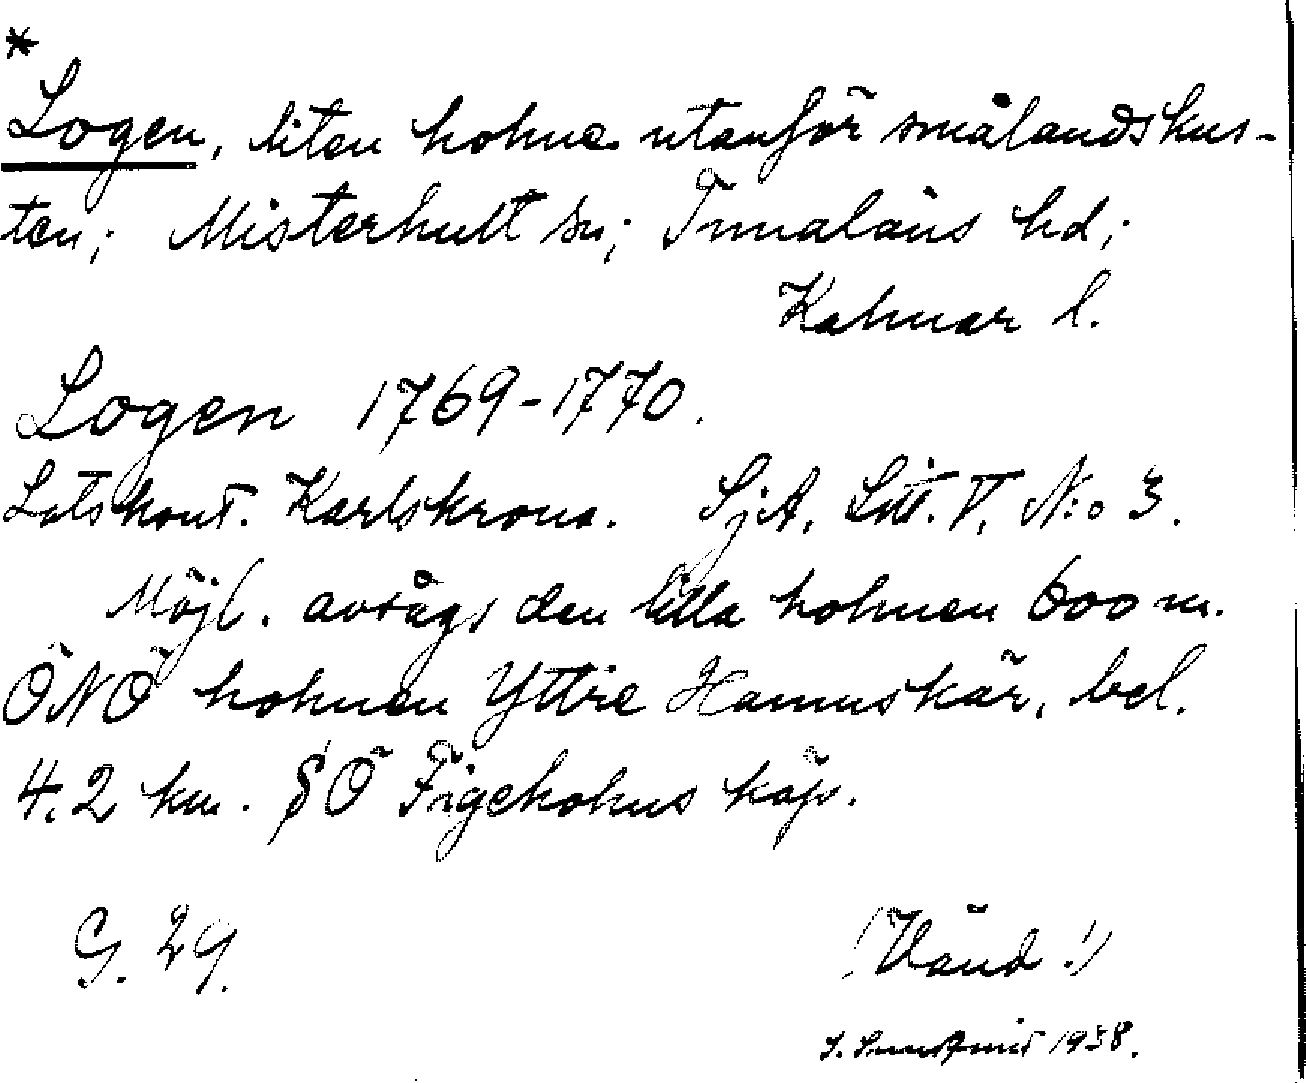 *
Logen, liten holme utanför smålandskus-
ten; Misterhult sn; Tunaläns hd;
Kalmar l.
Logen 1769-1770.
Lotskont. Karlskrona. SjA, Litt. V, N:o 3.
Möjl. avsågs den lilla holmen 600 m.
ÖNÖ holmen Yttre Hamnskär, bel.
4,2 km. SÖ Figeholms köp.
G. 29.
(Vänd!)
1938.